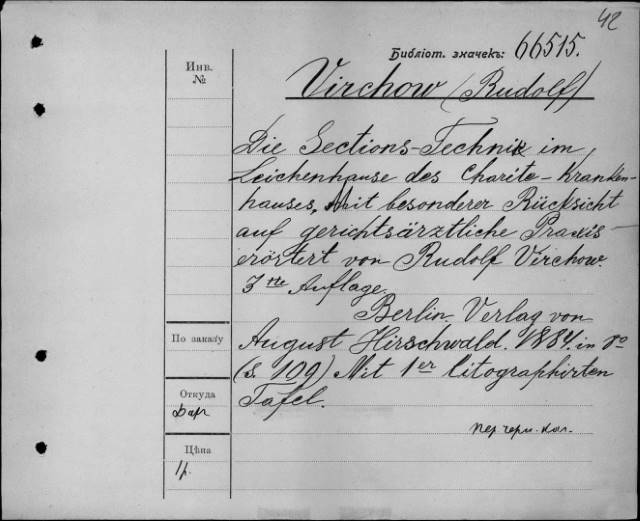 42
Библiот. значекъ: 66515.
Инв.
№
Virchow (Rudolf)
Die Sections-Technik im
Leichenhause des Charite-Kranken-
hauses, Mit besonderer Rücksicht
auf gerichtsärztliche Praxis
erörtert von Rudolf Virchow.
3te Auflage.
Berlin. Verlag von
По заказу
August Hirschwald. 1884. in 8°
(S 109) Mit 1er litographirten
Откуда
Tafel.
Дар
пер. черн. кол.
Цѣна
1р.